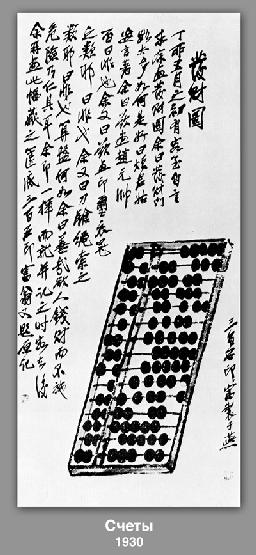 發財圖
丁卯五月之初有客至自言
求余畫發財圖余曰發財門
路太多如何是好曰煩君姑
妄言著余曰欲畫趙元帥
否曰非也余又曰欲畫印璽衣冠
之類耶曰非也余又曰刀槍繩索之
類耶曰非也算盤何如余曰善哉欲人錢財而不施
危險乃仁具耳余即一揮而就並記之時客去後
余再畫此幅藏之篋底三百石印富翁又題原記
三百石印富翁製于燕
Счеты
1930